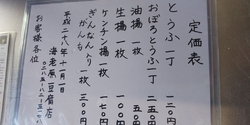 定価表
とうふ一丁 一二〇円
おぼろとうふ一丁 二五〇円
油揚一枚 五〇円
生揚一枚 一〇〇円
ケンチン揚一枚 一〇〇円
ぎんなん入り
がんも一枚 三〇〇円
平成二十八年十月一日
海老原豆腐店
お客様各位